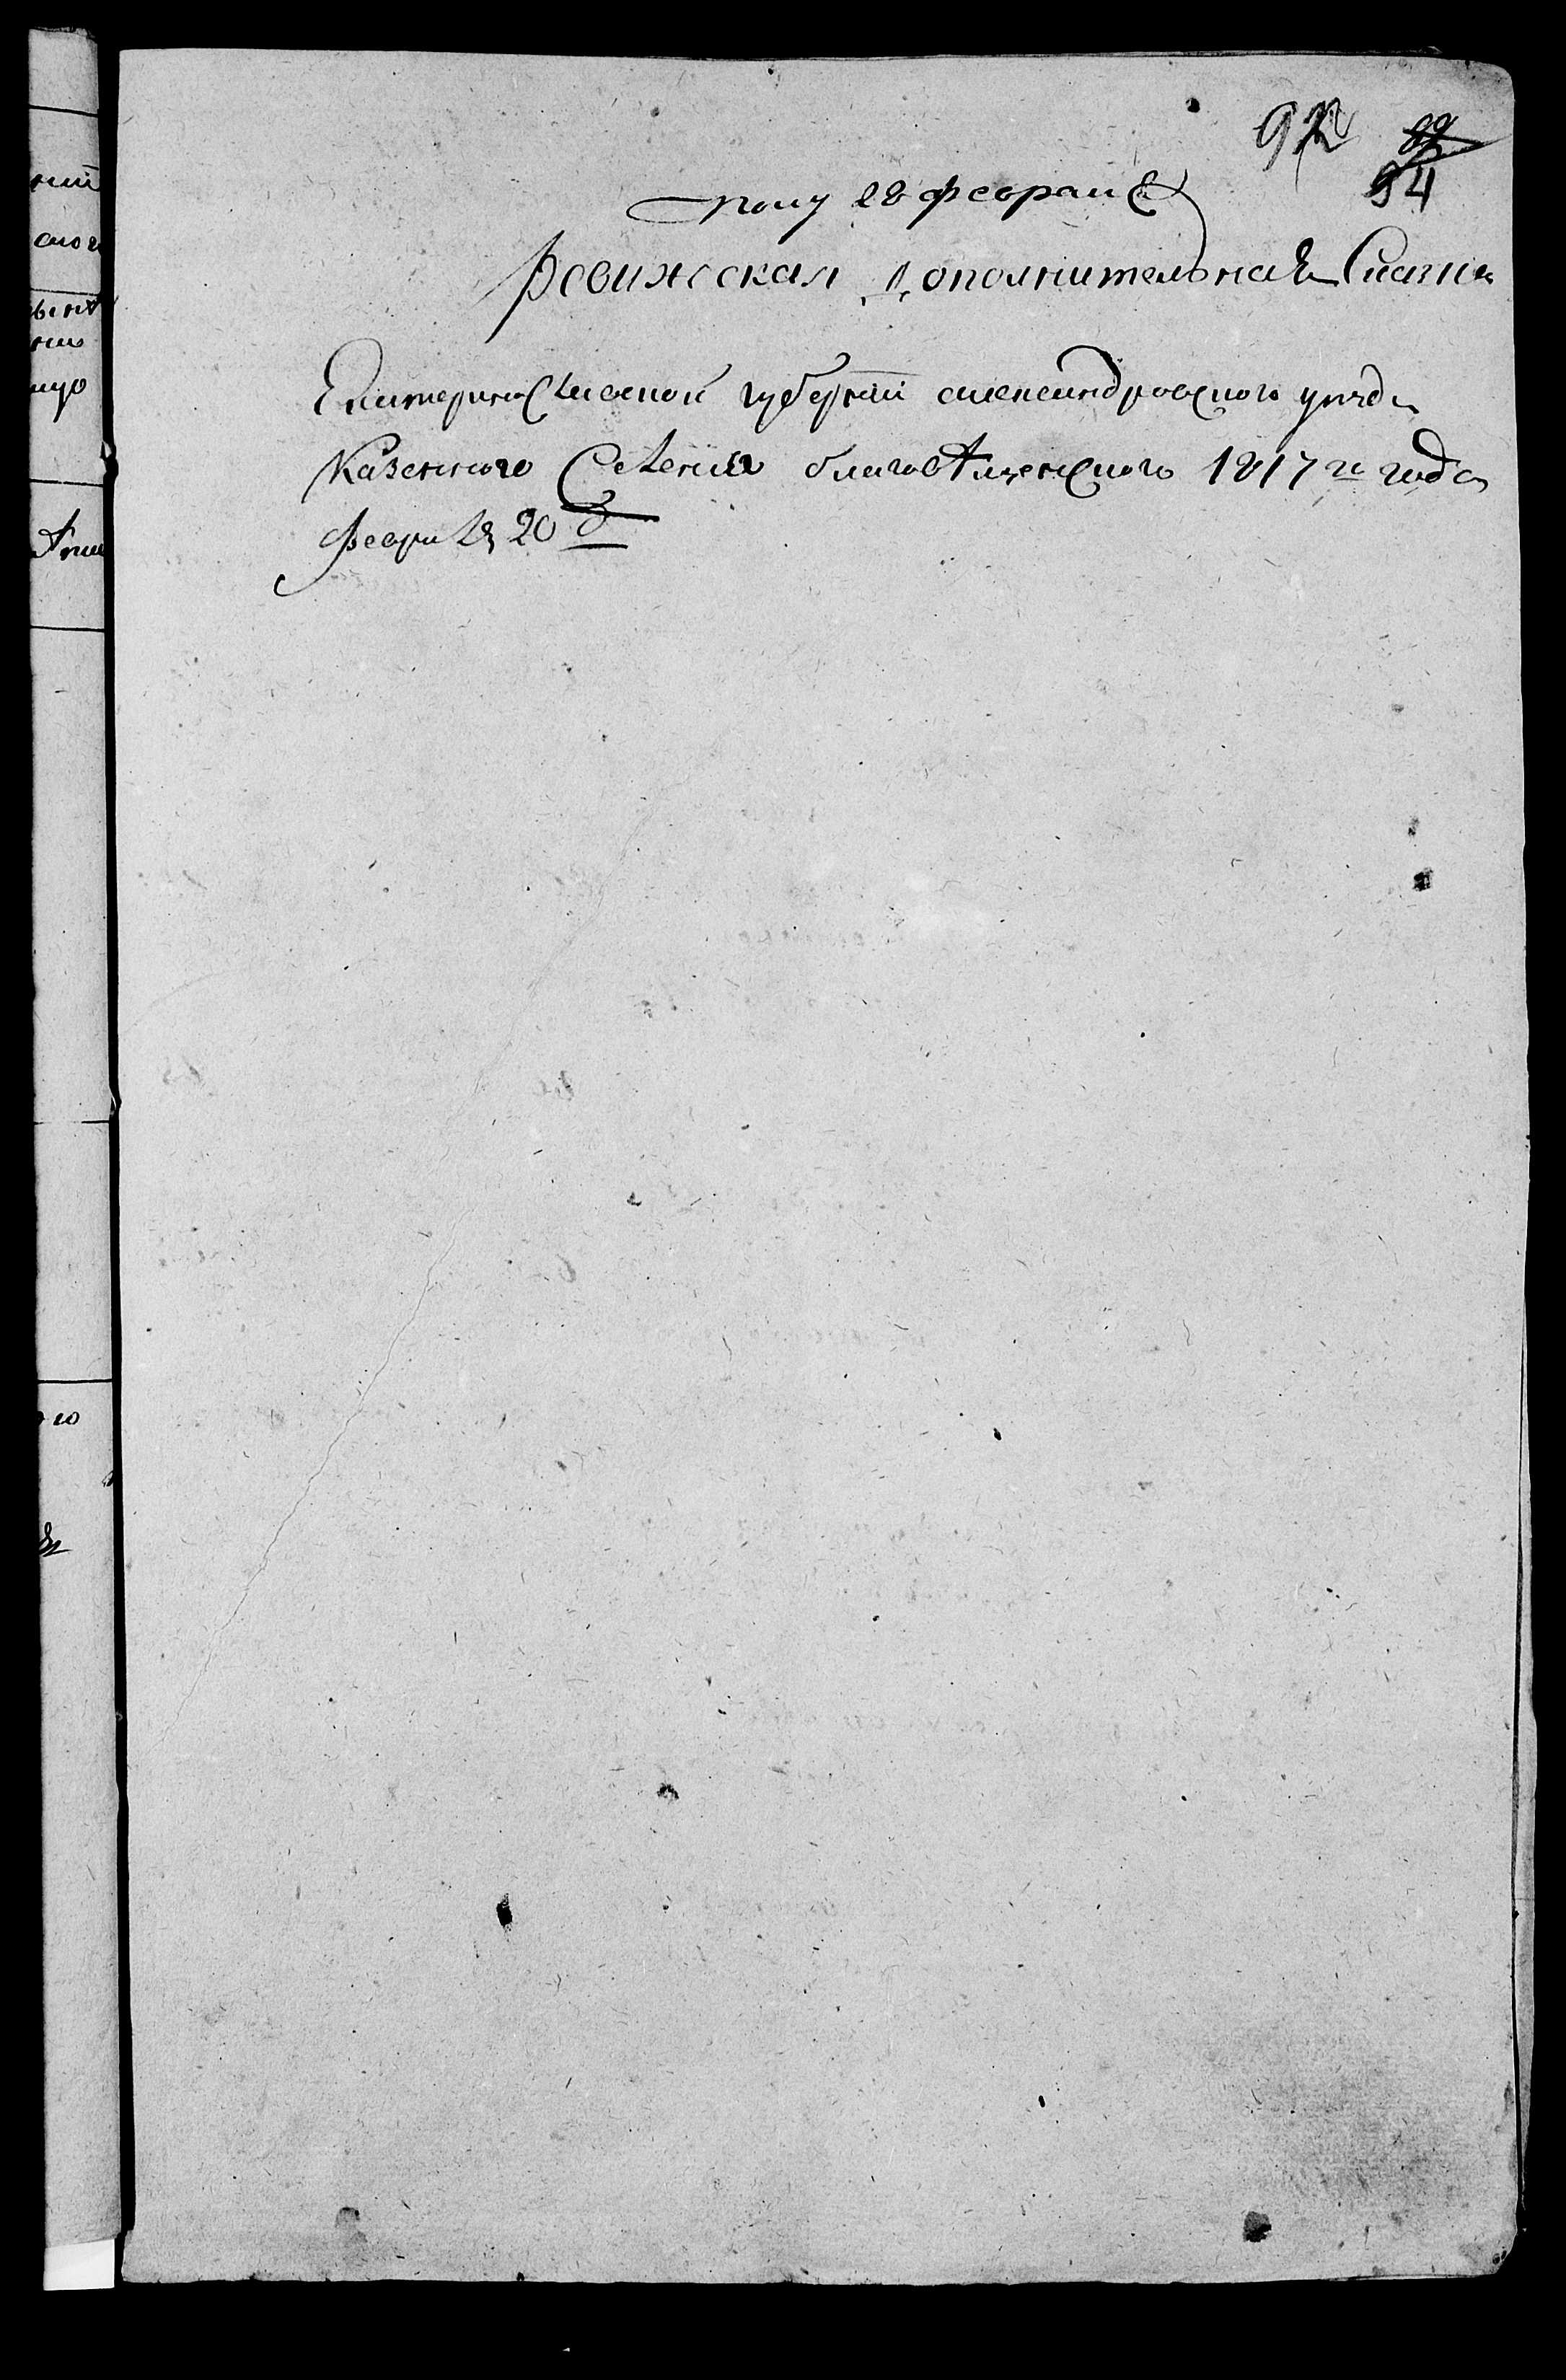 92 89
94
полу 28 февраля
Ревижская дополнительная Сказка
Екатеринославской губернии александровского уезда
Казенного Селения благовѣщенского 1817го года
февраля 20 д